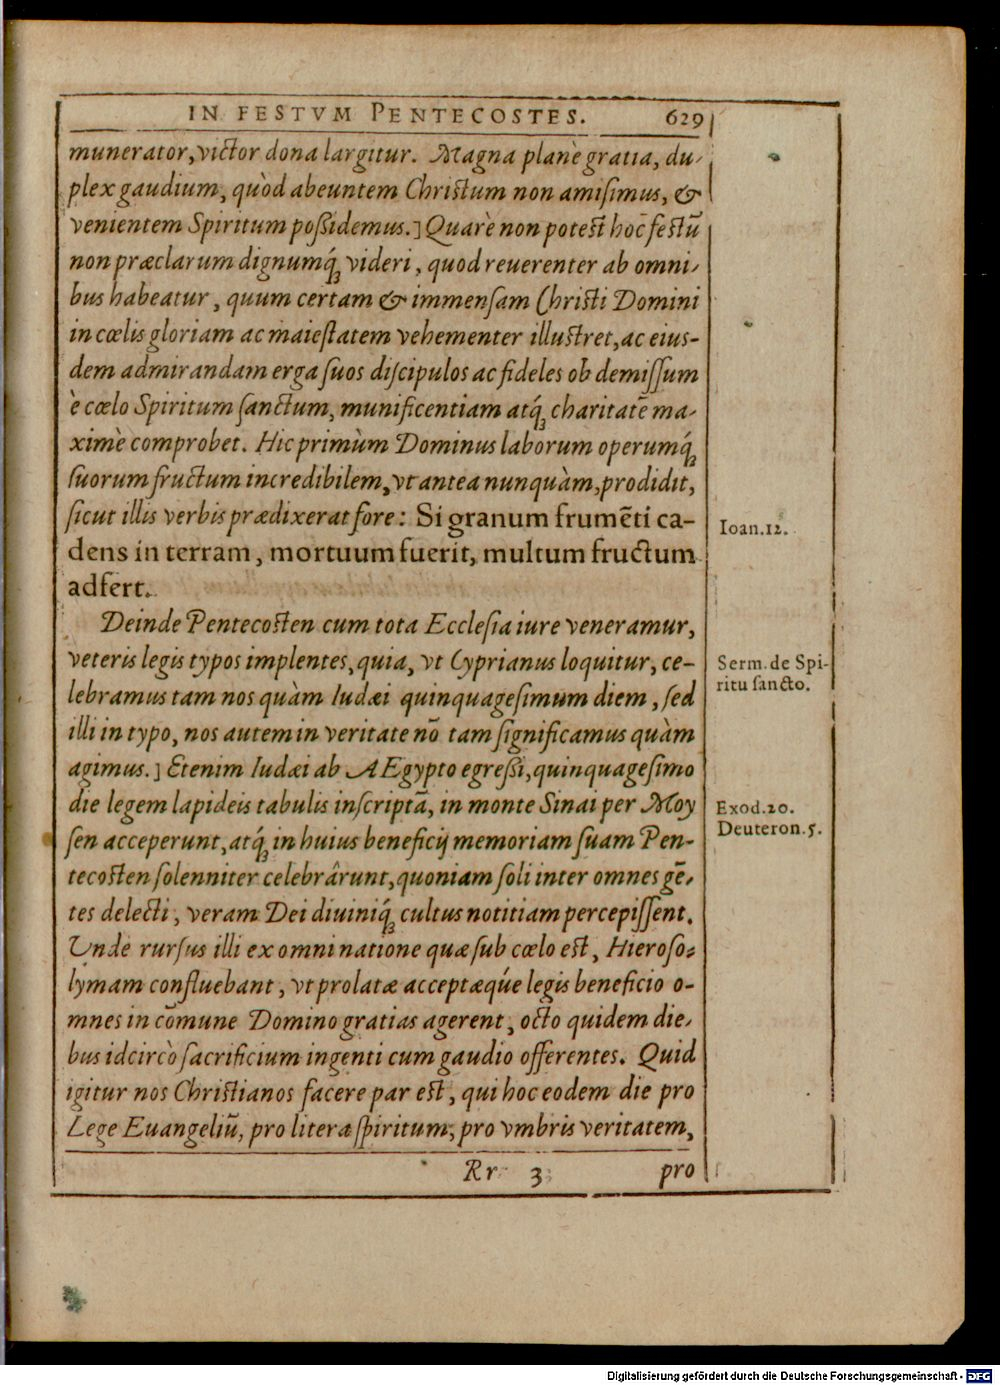 IN FESTVM PENTECOSTES. 629
munerator, victor dona largitur. Magna planè gratia, du-
plex gaudium, quòd abeuntem Christum non amisimus, &
venientem Spiritum poßidemus.] Quarè non potest hoc festū
non præclarum dignumq́ꝫ videri, quod reuerenter ab omni-
bus habeatur, quum certam & immensam Christi Domini
in cœlis gloriam ac maiestatem vehementer illustret, ac eius-
dem admirandam erga suos discipulos ac fideles ob demissum
è cœlo Spiritum sanctum, munificentiam atq́ꝫ charitatē ma-
ximè comprobet. Hic primùm Dominus laborum operumq́ꝫ
suorum fructum incredibilem, vt antea nunquàm, prodidit,
sicut illis verbis prædixerat fore: Si granum frumēti ca-
dens in terram, mortuum fuerit, multum fructum
adfert.
Ioan.12.
Deinde Pentecosten cum tota Ecclesia iure veneramur,
veteris legis typos implentes, quia, vt Cyprianus loquitur, ce-
lebramus tam nos quàm Iudæi quinquagesimum diem, sed
illi in typo, nos autem in veritate nō tam significamus quàm
agimus.] Etenim Iudæi ab AEgypto egreßi, quinquagesimo
die legem lapideis tabulis inscriptā, in monte Sinai per Moy
sen acceperunt, atq́ꝫ in huius beneficij memoriam suam Pen-
tecosten solenniter celebrârunt, quoniam soli inter omnes gē-
tes delecti, veram Dei diuiniq́ꝫ cultus notitiam percepissent.
Unde rursus illi ex omni natione quæ sub cœlo est, Hieroso-
lymam confluebant, vt prolatæ acceptæqúe legis beneficio o-
mnes in cōmune Domino gratias agerent, octo quidem die-
bus idcircò sacrificium ingenti cum gaudio offerentes. Quid
igitur nos Christianos facere par est, qui hoc eodem die pro
Lege Euangeliū, pro litera spiritum, pro vmbris veritatem,
Serm. de Spi-
ritu sancto.
Exod.20.
Deuteron.5.
Rr 3 pro
Digitalisierung gefördert durch die Deutsche Forschungsgemeinschaft - DFG